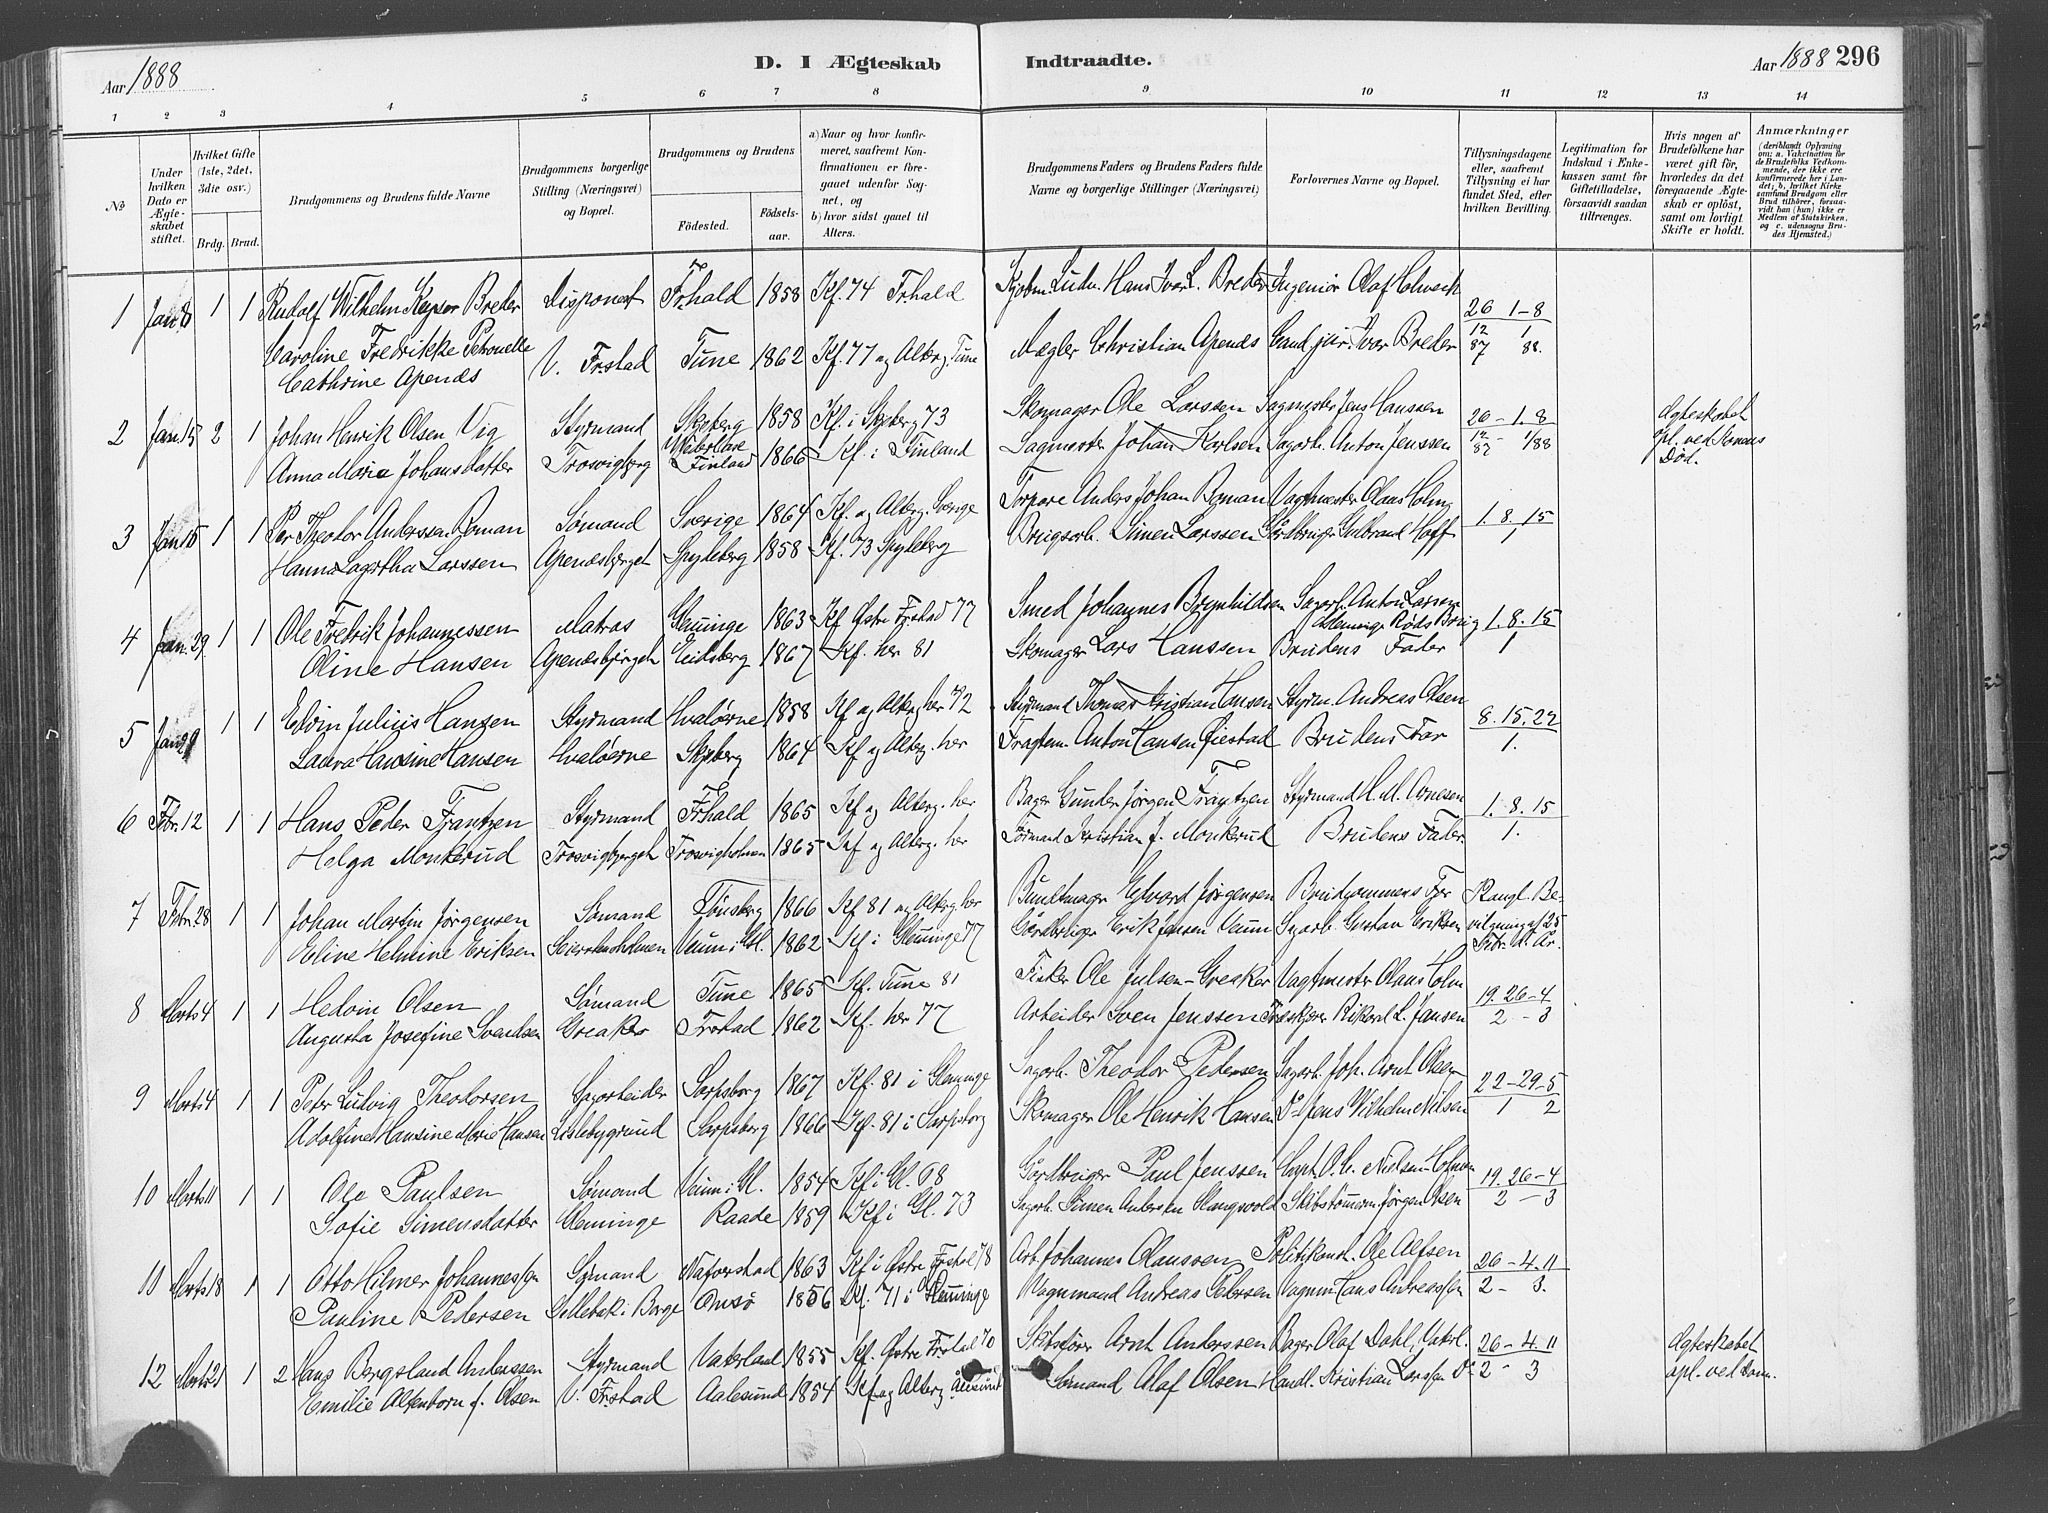 Aar 1888
D. I Ægteskab Indtraadte.
Aar 1888 296
1 2 3 4 5 6 7 8 9 10 11 12 13 14
No
Under hvilken Dato er Ægteskabet stiftet.
Hvilket Gifte (1ste, 2det, 3die osv.)
Brdg. Brud.
Brudgommens og Brudens fulde Navne
Brudgommens borgerlige Stilling (Næringsvei) og Bopæl.
Brudgommens og Brudens
Fødested.
Fødselsaar.
a) Naar og hvor konfirmeret, saafremt Konfirmationen er foregaaet udenfor Sognet, og
b) hvor sidst gaaet til Alters.
Brudgommens Faders og Brudens Faders fulde Navne og borgerlige Stillinger (Næringsvei)
Forlovernes Navne og Bopæl.
Tillysningsdagene eller, saafremt Tillysning ei har fundet Sted, efter hvilken Bevilling.
Legitimation for Indskud i Enkekassen samt for Giftetilladelse, forsaavidt saadan tiltrænges.
Hvis nogen af Brudefolkene har været gift før, hvorledes da det foregaaende Ægteskab er opløst, samt om lovligt Skifte er holdt.
Anmærkninger (deriblandt Oplysning om: a. Vakcination for de Brudefolks Vedkommende, der ikke ere konfirmerede her i Landet; b. hvilket Kirkesamfund Brudgom eller Brud tilhører, forsaavidt han (hun) ikke er Medlem af Statskirken, og c. udensogns Brudes Hjemsted.)
1 Jan 8 1 1 Rudolf Wilhelm Keyser Breder Disponent Frhald 1858 Kf. 74 Frhald Hans Ivar L. Breder Ingeniør Olaf Holwech 26 1-8
Caroline Fredrikke Petronelle V. Frstad Tune 1862 Kf. 77 og Alterg. Tune Mægler Christian Apenæs Cand. jur. Ivar Breder 12/87 1/88.
Cathrine Apenæs
2 Jan 15 2 1 Johan Henrik Olsen Vig Styrmand Skjeberg 1858 Kf. i Skjeberg 73 Skomager Ole Larssen Sagmester Jens Hanssen 26-1.8 Ægteskabet
Anna Maria Johansdatter Trosvigbjerg Finland 1866 Kf. i Finland Sagmester Johan Karlsen Sagarb. Anton Jenssen 12/87 - 1/88 opl. ved Konens
Død.
3 Jan 15 1 1 Per Theodor Anderssen Roman Sømand Sverige 1864 Kf. og Alterg. Sverige Torpare Anders Johan Roman Vagtmester Olaus Holm 1.8.15
Hanna Lagertha Larssen Apenæsbjerget Spydeberg 1858 Kf. 73 Spydeberg Brugsarb. Simen Larssen Gårdbruger Gulbrand Hoff 1
4 Jan. 29 1 1 Ole Fredrik Johannessen Matros Glemminge 1863 Kf Østre Frstad 77 Smed Johannes Brynhildsen Sagarb. Anton Larsen 1.8.15
Oline Hansen Apenæsbjerget Eidsberg 1867 Kf. her 81 Skomager Lars Hanssen Brudens Fader 1
5 Jan 29 1 1 Edvin Julius Hansen Styrmand Hvaløerne 1858 Kf og Alterg her 72 Styrmand Thomas Kristian Hansen Styrm. Andreas Olsen 8.15.22
Laura Hansine Hansen Hvaløerne Skjeberg 1864 Kf og Alterg. her Fragtem. Anton Hansen Øiestad Brudens Far 1.
6 Febr. 12 1 1 Hans Peder Frantzen Styrmand Frhald 1865 Kf og Alterg. her Bager Gunder Jørgen Frantzen Styrmand H. M. Arnesen 1.8.15
Helga Monkerud Trosvigbjerget Trosvigholmen 1865 Kf og Alterg. her Formand Kristian J. Monkerud Brudens Fader. 1.
7 Febr. 28 1 1 Johan Martin Jørgensen Sømand Tønsberg 1866 Kf 81 og Alterg. her Buntmager Edvard Jørgensen Brudgommens Far Kongl. Be-
Eline Helmine Eriksen Veum i Gl. 1862 Kf i Glemminge 77 Gårdbruger Erik Jensen Veum Sagarb. Gustav Eriksen vilgning af 25
Febr. d. Ar.
8 Marts 4 1 1 Hedvin Olsen Sømand Tune 1865 Kf. Tune 81 Fisker Ole Julsen - Greaker Vagtmester Olaus Holm 19.26-4
Augusta Josefine Svendsen Greaker Frstad 1862 Kf. her 77 Arbeider Sven Jenssen Rikard L. Jansen 2 - 3
9 Marts 4 1 1 Peter Ludvig Theodorsen Sagarbeider Sarpsborg 1867 Kf. 81 i Glemminge Sagarb. Theodor Pedersen Sagarb. Joh. Arnt Olsen 22-29-5
Adolfine Hansine Marie Hansen Lislebygrund Sarpsborg 1866 Kf. 81 i Sarpsborg Skomager Ole Henrik Hansen Do Jens Wilhelm Nilsen 1 2
10 Marts 11 1 1 Ole Paulsen Sømand Veum i Gl. 1854 Kf i Gl. 68 Gårdbruger Paul Jenssen Capt. O. C. Nielsen - Holmen 19.26-4
Sofie Simensdatter Glemminge Raade 1859 Kf i Gl. 73 Sagarb. Simen Andersen Stangvold Skibstømerm. Jørgen Olsen 2 - 3
11 Marts 18 1 1 Otto Hilmer Johannessen Sømand Naverstad 1863 Kf i Østre Frstad 78 Arb. Johannes Olaussen Politikonst. Ole Alfsen 26-4.11
Pauline Pedersen Sellebak i Borge Onsø 1856 Kf. 71 i Glemminge Vognmand Andreas Pedersen Vognm Hans Andreassen 2- 3.
12 Marts 21 1 2 Hans Bergsland Anderssen Styrmand Vaterland 1855 Kf. Østre Frstad 70 Skibsfører Arnt Anderssen Bager Olaf Dahl, Vaterl. 26-4.11 Ægteskabet
Emilie Altenborn f. Olsen V. Frstad Aalesund 1854 Kf og Alterg Ålesund Sømand Olaf Olsen Handl. Kristian Larssen Do 2 - 3 opl. ved Dom.